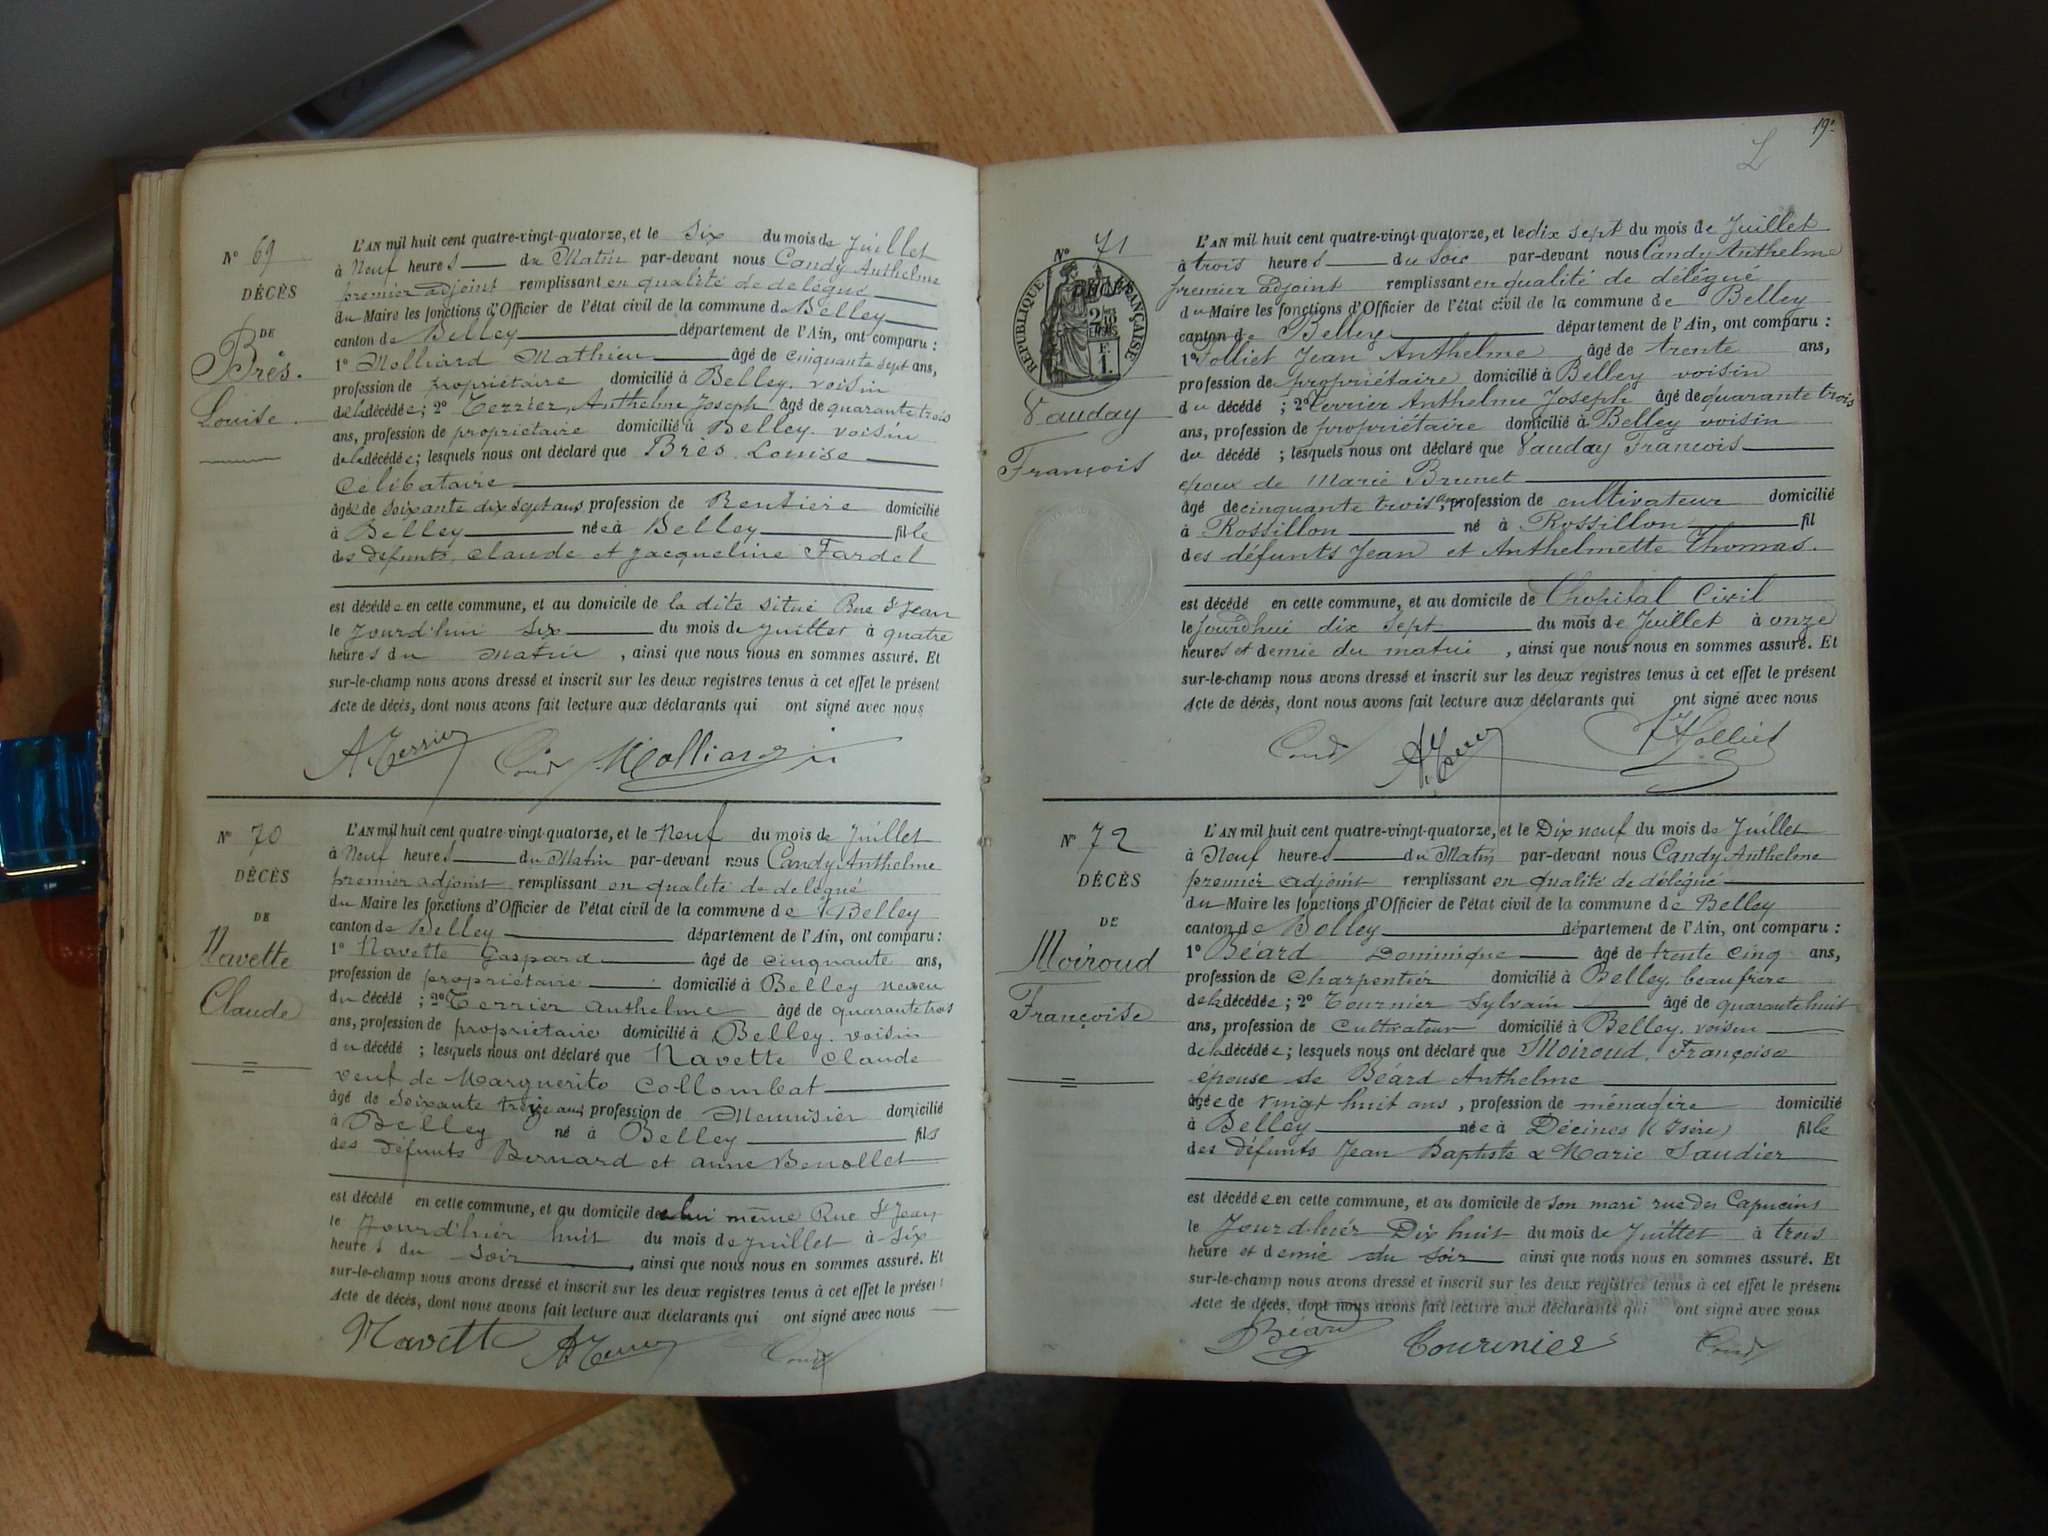 N° 69
DÉCÈS
DE
Brès.
Louise.
L'AN mil huit cent quatre-vingt-quatorze, et le six du mois de Juillet
à Neuf heures du Matin par-devant nous Candy Anthelme
premier adjoint remplissant en qualité de délégué
du Maire les fonctions d'Officier de l'état civil de la commune de Belley
canton de Belley département de l'Ain, ont comparu :
1° Molliard Mathieu âgé de cinquante sept ans,
profession de propriétaire domicilié à Belley. voisin
de la décédée ; 2° Terrier Anthelme Joseph âgé de quarante trois
ans, profession de propriétaire domicilié à Belley. voisin
de la décédée ; lesquels nous ont déclaré que Brès Louise
Célibataire
âgée de soixante dix sept ans profession de Rentière domicilié
à Belley née à Belley fille
des défunts Claude et Jacqueline Fardel
est décédée en cette commune, et au domicile de la dite situé Rue St Jean
le Jourd'hui six du mois de Juillet à quatre
heures du Matin, ainsi que nous nous en sommes assuré. Et
sur-le-champ nous avons dressé et inscrit sur les deux registres tenus à cet effet le présent
Acte de décès, dont nous avons fait lecture aux déclarants qui ont signé avec nous
A Terrier Candy Molliard
N° 70
DÉCÈS
DE
Navette
Claude
L'AN mil huit cent quatre-vingt-quatorze, et le Neuf du mois de Juillet
à Neuf heures du Matin par-devant nous Candy Anthelme
premier adjoint remplissant en qualité de délégué
du Maire les fonctions d'Officier de l'état civil de la commune de Belley
canton de Belley département de l'Ain, ont comparu :
1° Navette Gaspard âgé de cinquante ans,
profession de propriétaire domicilié à Belley neveu
du décédé ; 2° Terrier Anthelme âgé de quarante trois
ans, profession de propriétaire domicilié à Belley. voisin
du décédé ; lesquels nous ont déclaré que Navette Claude
veuf de Marguerite Collombat
âgé de soixante treize ans, profession de Menuisier domicilié
à Belley né à Belley fils
des défunts Bernard et Anne Benollet
est décédé en cette commune, et au domicile de lui même Rue St Jean
le Jourd'hier huit du mois de Juillet à six
heures du soir, ainsi que nous nous en sommes assuré. Et
sur-le-champ nous avons dressé et inscrit sur les deux registres tenus à cet effet le présent
Acte de décès, dont nous avons fait lecture aux déclarants qui ont signé avec nous
Navette A Terrier Candy
19
L
N° 71
DÉCÈS
RÉPUBLIQUE FRANÇAISE
Vauday
François
L'AN mil huit cent quatre-vingt-quatorze, et le dix sept du mois de Juillet
à trois heures du soir par-devant nous Candy Anthelme
premier adjoint remplissant en qualité de délégué
du Maire les fonctions d'Officier de l'état civil de la commune de Belley
canton de Belley département de l'Ain, ont comparu :
1° Jolliet Jean Anthelme âgé de trente ans,
profession de propriétaire domicilié à Belley voisin
du décédé ; 2° Terrier Anthelme Joseph âgé de quarante trois
ans, profession de propriétaire domicilié à Belley voisin
du décédé ; lesquels nous ont déclaré que Vauday François
époux de Marie Brunet
âgé de cinquante trois ans, profession de cultivateur domicilié
à Rossillon né à Rossillon fil
des défunts Jean et Anthelmette Thomas.
est décédé en cette commune, et au domicile de l'hopital Civil
le Jourd'hui dix sept du mois de Juillet à onze
heures et demie du matin, ainsi que nous nous en sommes assuré. Et
sur-le-champ nous avons dressé et inscrit sur les deux registres tenus à cet effet le présent
Acte de décès, dont nous avons fait lecture aux déclarants qui ont signé avec nous
Candy A Terrier Jolliet
N° 72
DÉCÈS
DE
Moiroud
Françoise
L'AN mil huit cent quatre-vingt-quatorze, et le Dix neuf du mois de Juillet
à Neuf heures du Matin par-devant nous Candy Anthelme
premier adjoint remplissant en qualité de délégué
du Maire les fonctions d'Officier de l'état civil de la commune de Belley
canton de Belley département de l'Ain, ont comparu :
1° Béard Dominique âgé de trente cinq ans,
profession de Charpentier domicilié à Belley, beau frère
de la décédée ; 2° Tournier Sylvain âgé de quarante huit
ans, profession de Cultivateur domicilié à Belley. voisin
de la décédée ; lesquels nous ont déclaré que Moiroud Françoise
épouse de Béard Anthelme
âgée de vingt huit ans, profession de ménagère domicilié
à Belley née à Décines (Isère) fille
des défunts Jean Baptiste & Marie Saudier
est décédée en cette commune, et au domicile de son mari rue des Capucins
le Jourd'hier Dix huit du mois de Juillet à trois
heure et demie du soir ainsi que nous nous en sommes assuré. Et
sur-le-champ nous avons dressé et inscrit sur les deux registres tenus à cet effet le présent
Acte de décès, dont nous avons fait lecture aux déclarants qui ont signé avec nous
Béard Tournier Candy